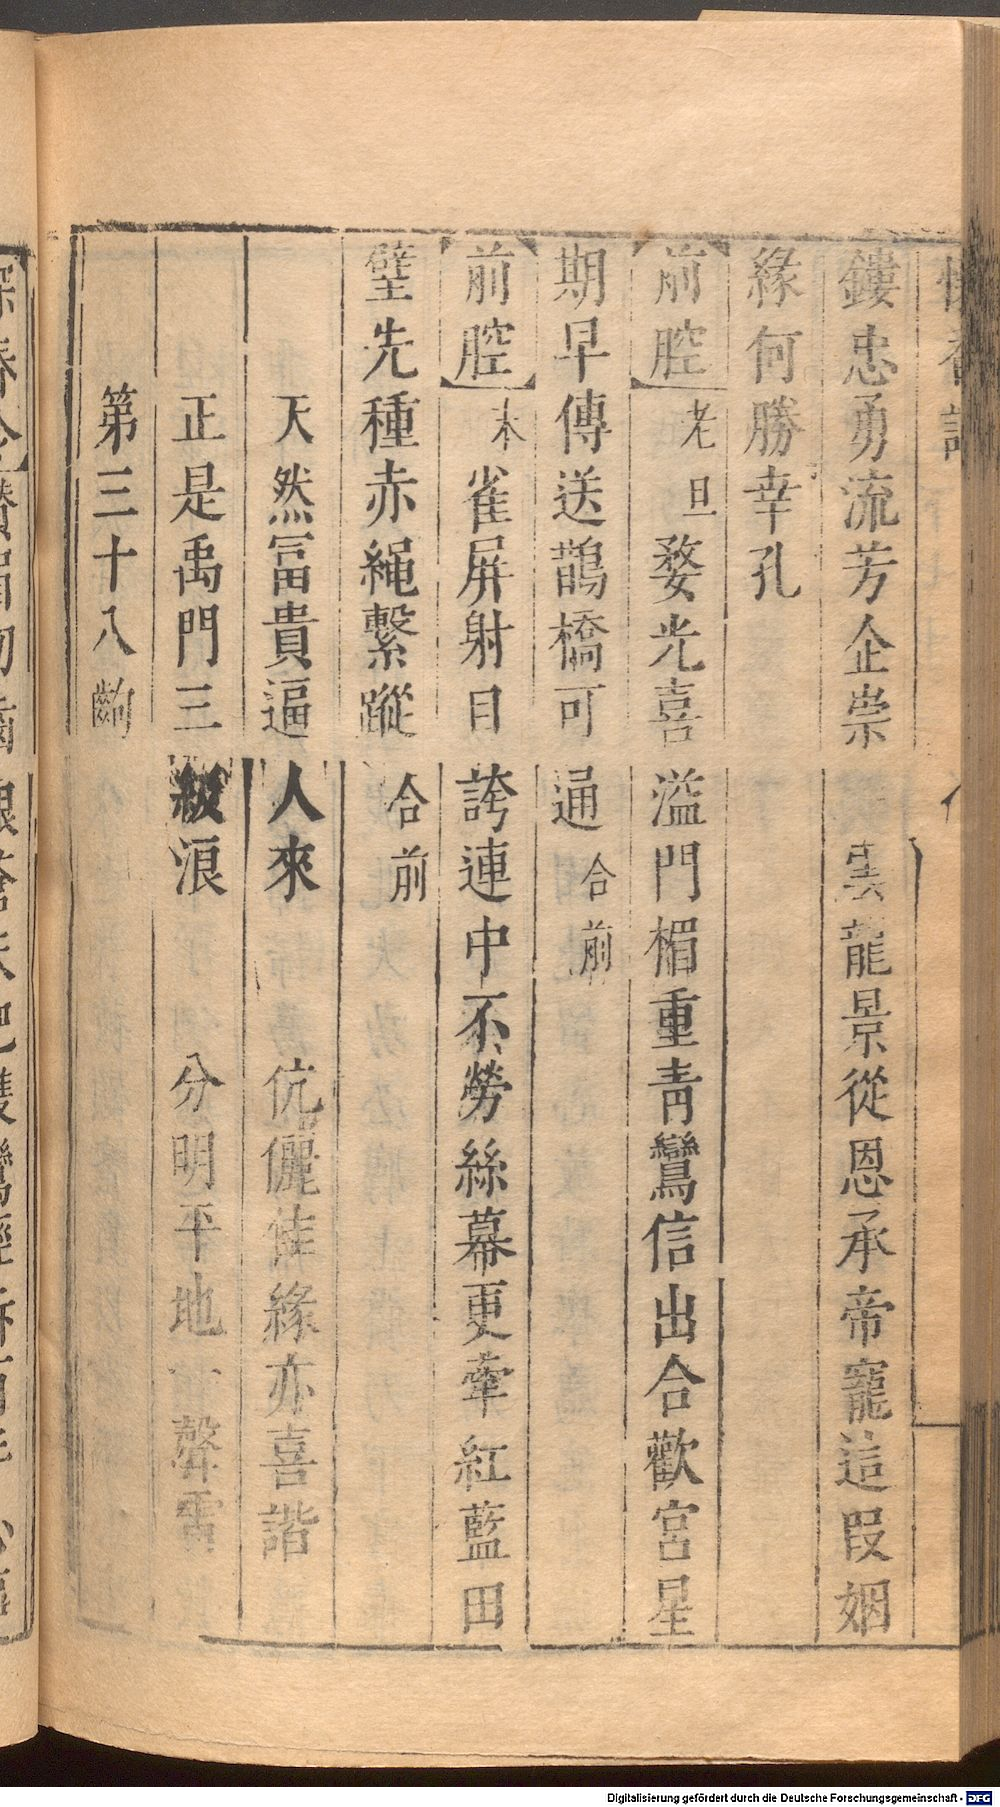 懷香記
鏤忠勇流芳企崇 雲龍景從恩承帝寵這叚姻
緣何勝幸孔
前腔 老旦 婺光喜溢門楣重青鸞信出合歡宮星
期早傳送鵲橋可通 合前
前腔 末 雀屏射目誇連中不勞絲幕更牽紅藍田
璧先種赤繩繫蹤 合前
天然冨貴逼人來 伉儷佳緣亦喜諧
正是禹門三級浪 分明平地一聲雷
第三十八齣
Digitalisierung gefördert durch die Deutsche Forschungsgemeinschaft - DFG